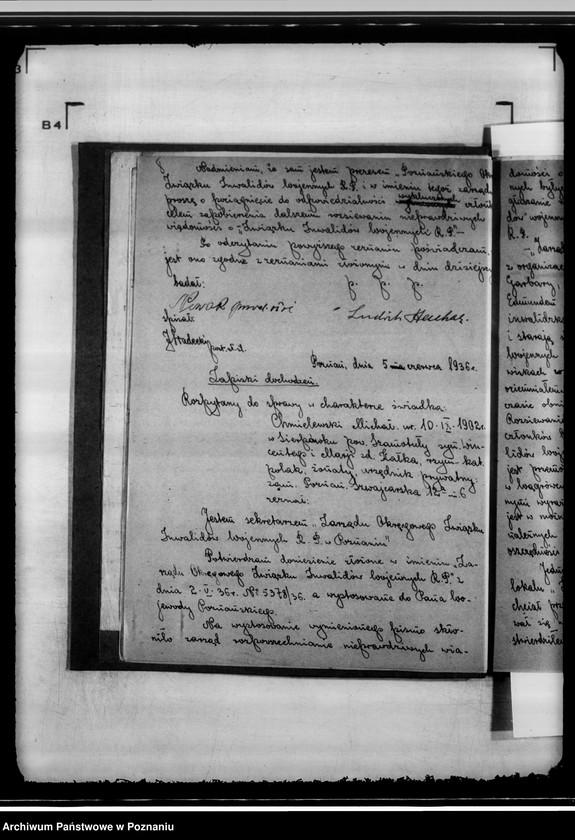 B4
Nadmieniam, że sam jestem prezesem „Poznańskiego Okr
Związku Inwalidów Wojennych R.P. i w imieniu tegoż zarząd
proszę o pociągnięcie do odpowiedzialności
celem zapobieżenia dalszem rozsiewaniu nieprawdziwych
wiadomości o „Związku Inwalidów Wojennych R.P."–
Po odczytaniu powyższego zeznania poświadczam,
jest ono zgodne z zeznaniami złożonymi w dniu dzisiejszy
badał: p. p. p.
Nowak
spisał: Ludwik
post. sł. śl.
Poznań, dnia 5 czerwca 1936 r.
Zapiski dochodzeń.
Rozpytany do sprawy w charakterze świadka:
Chmielewski Michał ur. 10.IX.1902 r.
w pow. Szamotuły syn Win-
centego i Marji zd. Białka, rzym. kat.
polak, żonaty, urzędnik prywatny
zam. Poznań, Szwajcarska 12 m 6
zeznał:
Jestem sekretarzem „Zarządu Okręgowego Związku
Inwalidów Wojennych R.P. w Poznaniu"
Potwierdzam doniesienie złożone w imieniu „Za-
rządu Okręgowego Związku Inwalidów Wojennych R.P." z
dnia 2.VI.36 r. Nr 5378/36. a wystosowane do Pana Wo-
jewody Poznańskiego.
Na wystosowanie wymienionego pismo skło-
niło zarząd rozpowszechnianie nieprawdziwych wia-
domości o
nych było
dów wojenn
R.P.
– „Zarząd
z organizac
Garbary
Edmunden
inwalidzk
i starają s
Wojennych
czasie
Rozsiewani
członków
lidów Woj
jest
w Wągrowc
nymi
jest w
należnych
oszczędności
lokalu „
chciał prz
wać się
stwierdziłe
Archiwum Państwowe w Poznaniu